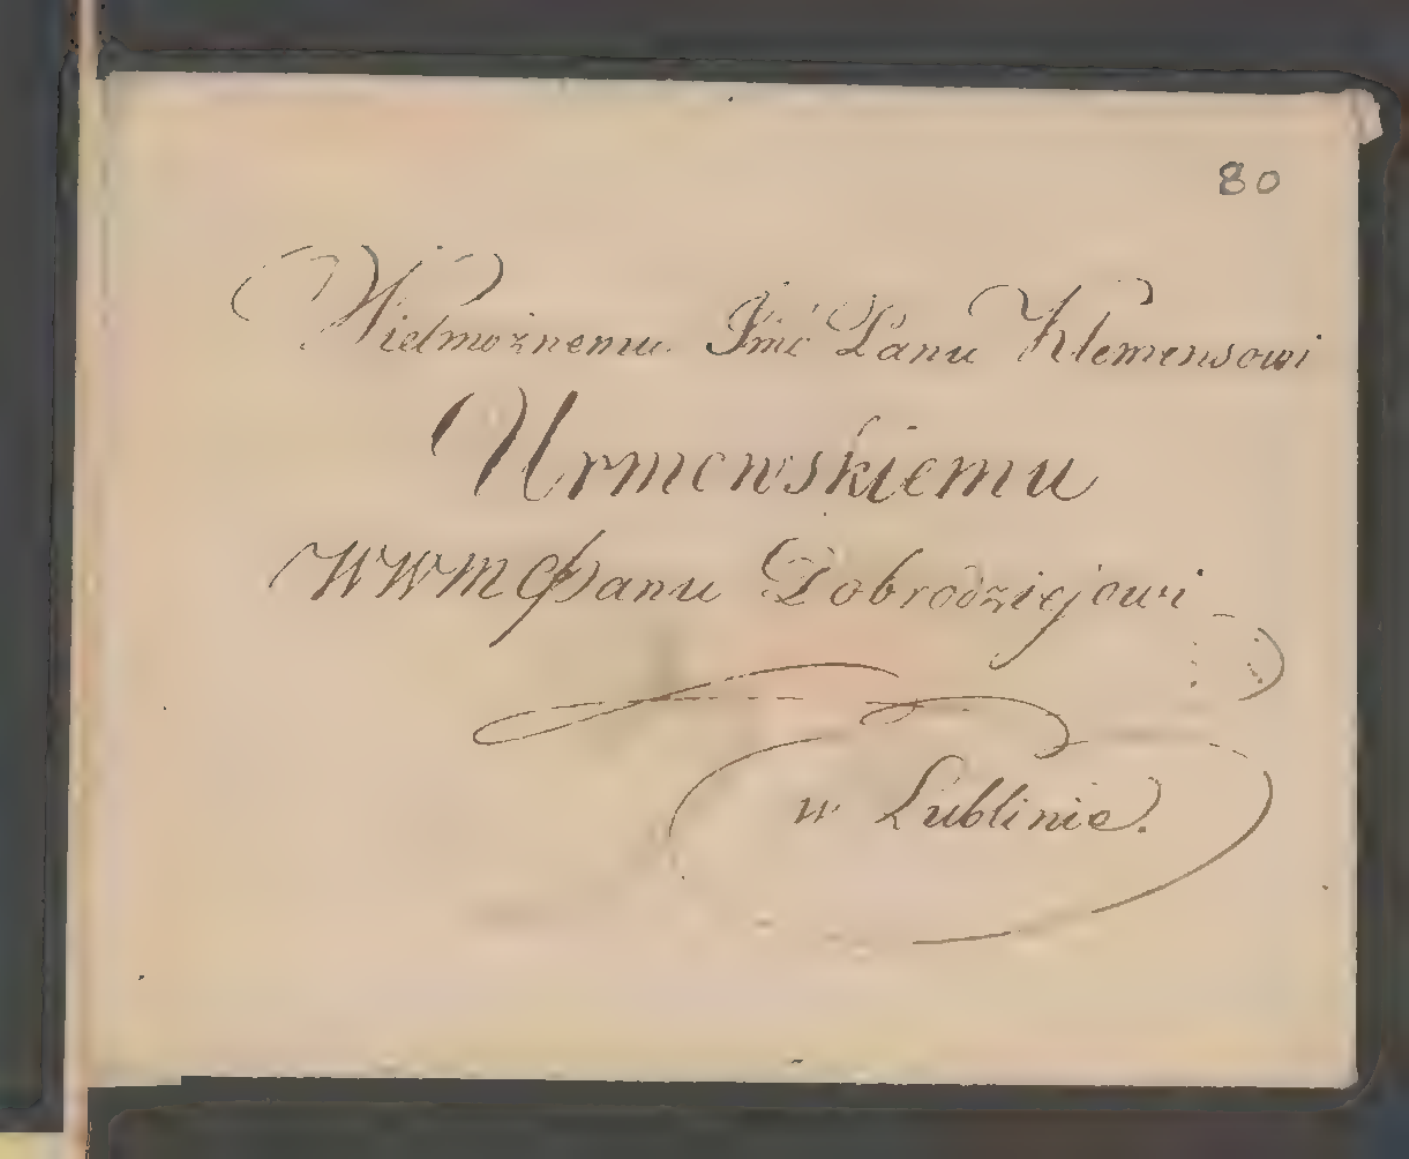 80
Wielmożnemu Jmć Panu Klemensowi
Urmowskiemu
WWMCPanu Dobrodziejowi
w Lublinie.